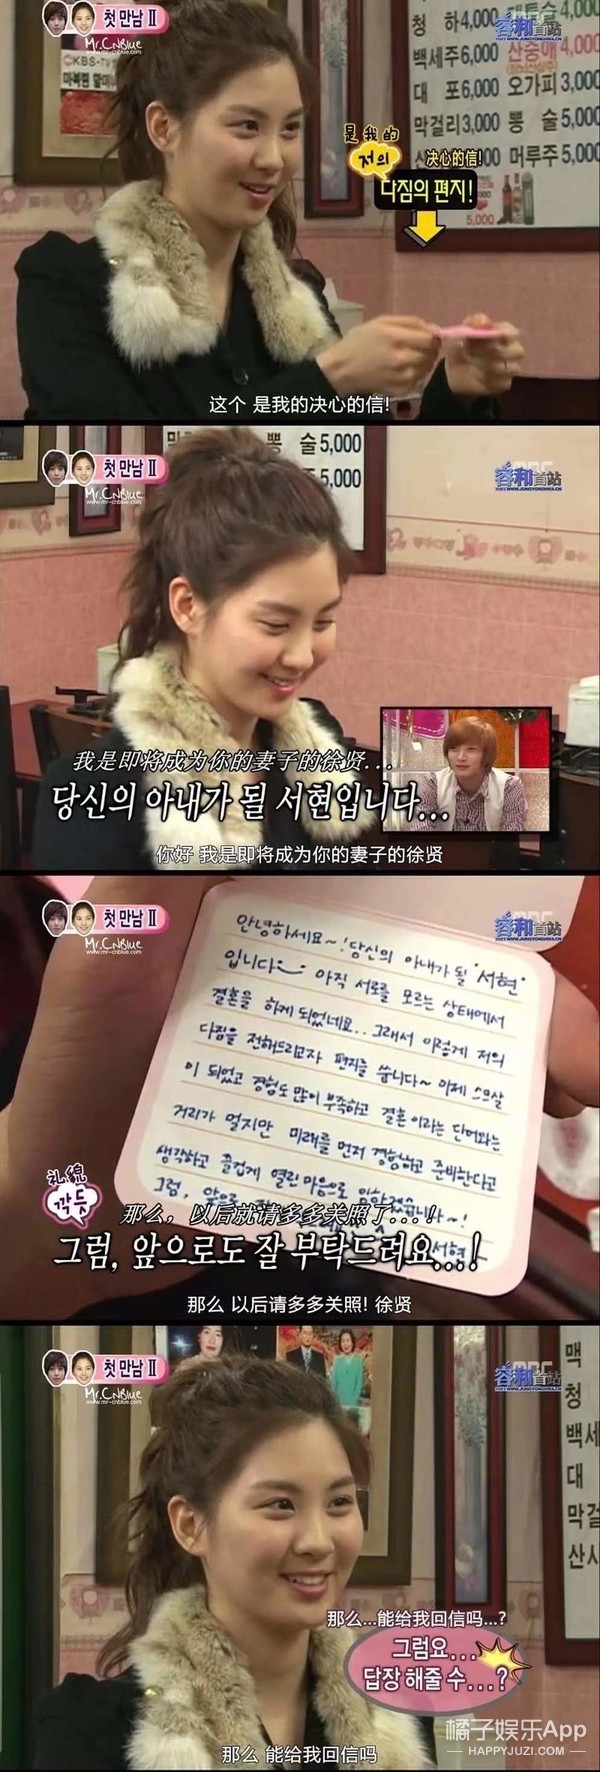 첫 만남 Ⅱ
Mr.CNBlue
www.mr-cnblue.com
KBS-TV
청 하4,000
4,000
백세주6,000
산충애4,000
대 포6,000 오가피3,000
막걸리3,000 뽕 술5,000
머루주5,000
5,000
容和首站
WWW.JUNGYONGHWA.CN
是我的
저의
决心的信!
다짐의 편지!
这个 是我的决心的信!
첫 만남 Ⅱ
Mr.CNBlue
www.mr-cnblue.com
뽕 술5,000
5,000
容和首站
WWW.JUNGYONGHWA.CN
我是即将成为你的妻子的徐贤...
당신의 아내가 될 서현입니다...
你好 我是即将成为你的妻子的徐贤
첫 만남 Ⅱ
Mr.CNBlue
www.mr-cnblue.com
容和首站
WWW.JUNGYONGHWA.CN
안녕하세요~! 당신의 아내가 될 "서현"
입니다 아직 서로를 모르는 상태에서
결혼을 하게 되었네요.. 그래서 이렇게 저의
다짐을 전해드리고자 편지를 씁니다~ 이제 스무살
이 되었고 경험도 많이 부족하고 결혼이라는 단어와는
거리가 멀지만 미래를 먼저 경험하고 준비한다고
생각하고 즐겁게 열린 마음으로 임하겠습니다~!
그럼, 앞으로
서현
礼貌
깍듯
那么，以后就请多多关照了...!
그럼, 앞으로도 잘 부탁드려요...!
那么 以后请多多关照! 徐贤
첫 만남 Ⅱ
Mr.CNBlue
www.mr-cnblue.com
容和首站
WWW.JUNGYONGHWA.CN
맥
청
백세
대
막걸
산사
那么...能给我回信吗...?
그럼요...
답장 해줄 수...?
那么 能给我回信吗
橘子娱乐App
HAPPYJUZI.COM